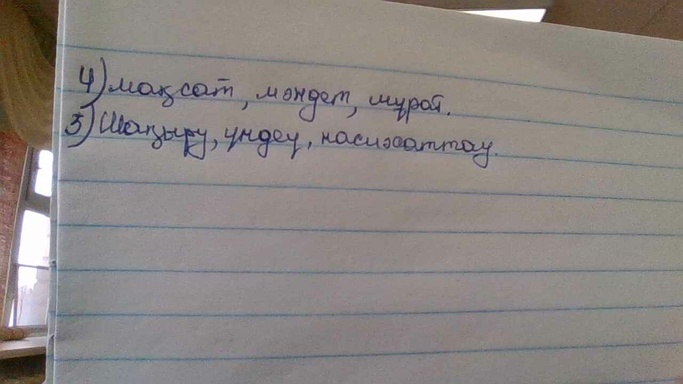 4) мақсат, міндет, мұрат.
5) Шақыру, үндеу, насихаттау.